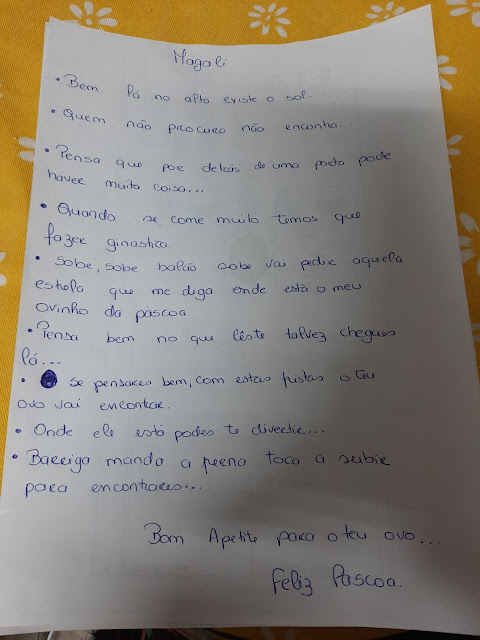 Magali
• Bem lá no alto existe o sol...
• Quem não procura não encontra...
• Pensa que por detrás de uma porta pode
haver muita coisa...
• Quando se come muito temos que
fazer ginastica.
• Sobe, sobe balão sobe vai pedir aquela
estrela que me diga onde está o meu
ovinho da páscoa.
• Pensa bem no que lêste talvez chegues
lá...
• se pensares bem, com estas pistas o teu
ovo vai encontar.
• Onde ele está podes te divertir...
• Barriga manda a perna toca a subir
para encontrares...
Bom Apetite para o teu ovo...
Feliz Páscoa.